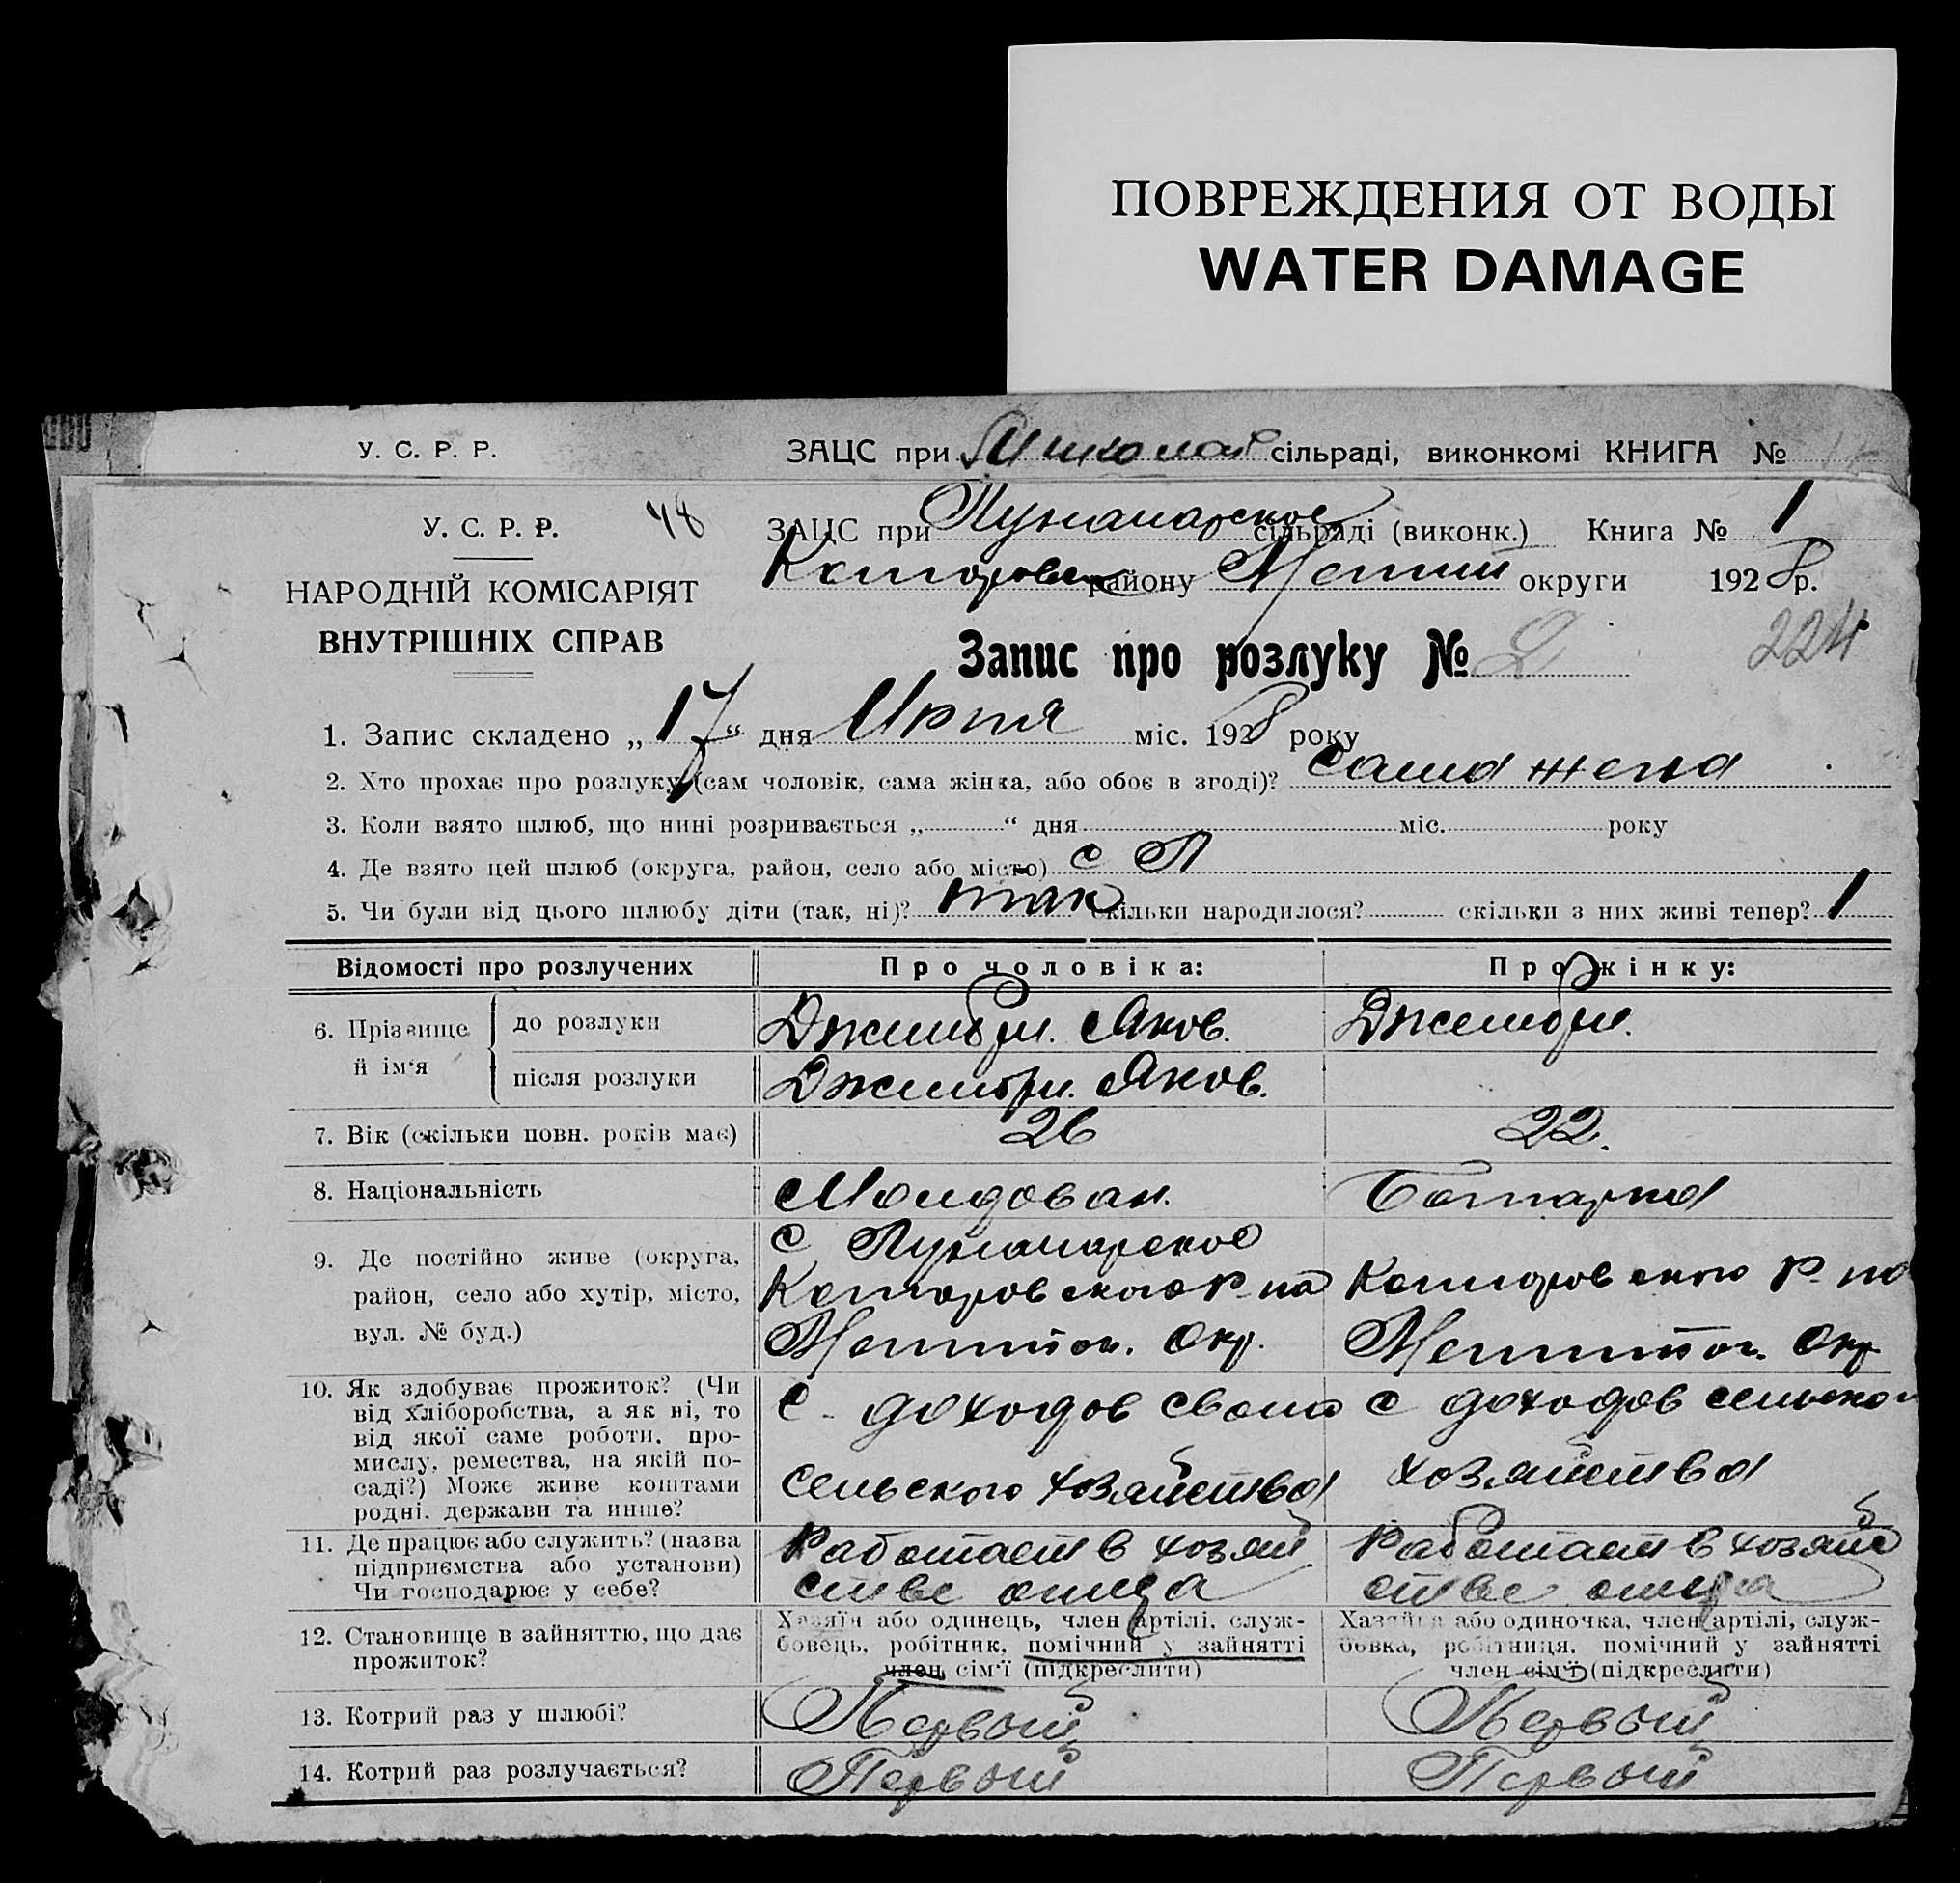 ПОВРЕЖДЕНИЯ ОТ ВОДЫ
WATER DAMAGE
У. С. Р. Р. ЗАЦС при сільраді, виконкомі КНИГА №
У. С. Р. Р. 48 ЗАЦС при Луначарское сільраді (виконк.) Книга № 1
району округи 1928 р.
НАРОДНІЙ КОМІСАРІЯТ
ВНУТРІШНІХ СПРАВ
Запис про розлуку № 2 224
1. Запис складено „17“ дня міс. 1928 року
2. Хто прохає про розлуку (сам чоловік, сама жінка, або обоє в згоді)? сама жена
3. Коли взято шлюб, що нині розривається „ “ дня міс. року
4. Де взято цей шлюб (округа, район, село або місто) с Л
5. Чи були від цього шлюбу діти (так, ні)? так скільки народилося? скільки з них живі тепер? 1
Відомості про розлучених Про чоловіка: Про жінку:
6. Прізвище й ім‘я до розлуки Джимбри. Яков. Джембри.
після розлуки Джимбри. Яков.
7. Вік (скільки повн. років має) 26 22.
8. Національність Молдован. Болгарка
9. Де постійно живе (округа, с Луначарское
район, село або хутір, місто, р-на р-на
вул. № буд.) Окр. Окр
10. Як здобуває прожиток? (Чи
від хліборобства, а як ні, то с доходов своего с доходов сельского
від якої саме роботи, про-
мислу, ремества, на якій по-
саді?) Може живе коштами сельского хозяйства хозяйства
родні, держави та инше?
11. Де працює або служить? (назва Работает в хозяй Работает в хозяйс
підприємства або установи)
Чи господарює у себе? стве отца стве отца
12. Становище в зайняттю, що дає прожиток?
Хазяїн або одинець, член артілі, служ-
бовець, робітник, помічний у зайнятті
член сім‘ї (підкреслити)
Хазяйка або одиночка, член артілі, служ-
бовка, робітниця, помічний у зайнятті
член сім‘ї (підкреслити)
13. Котрий раз у шлюбі? Первый Первый
14. Котрий раз розлучається? Первый Первый